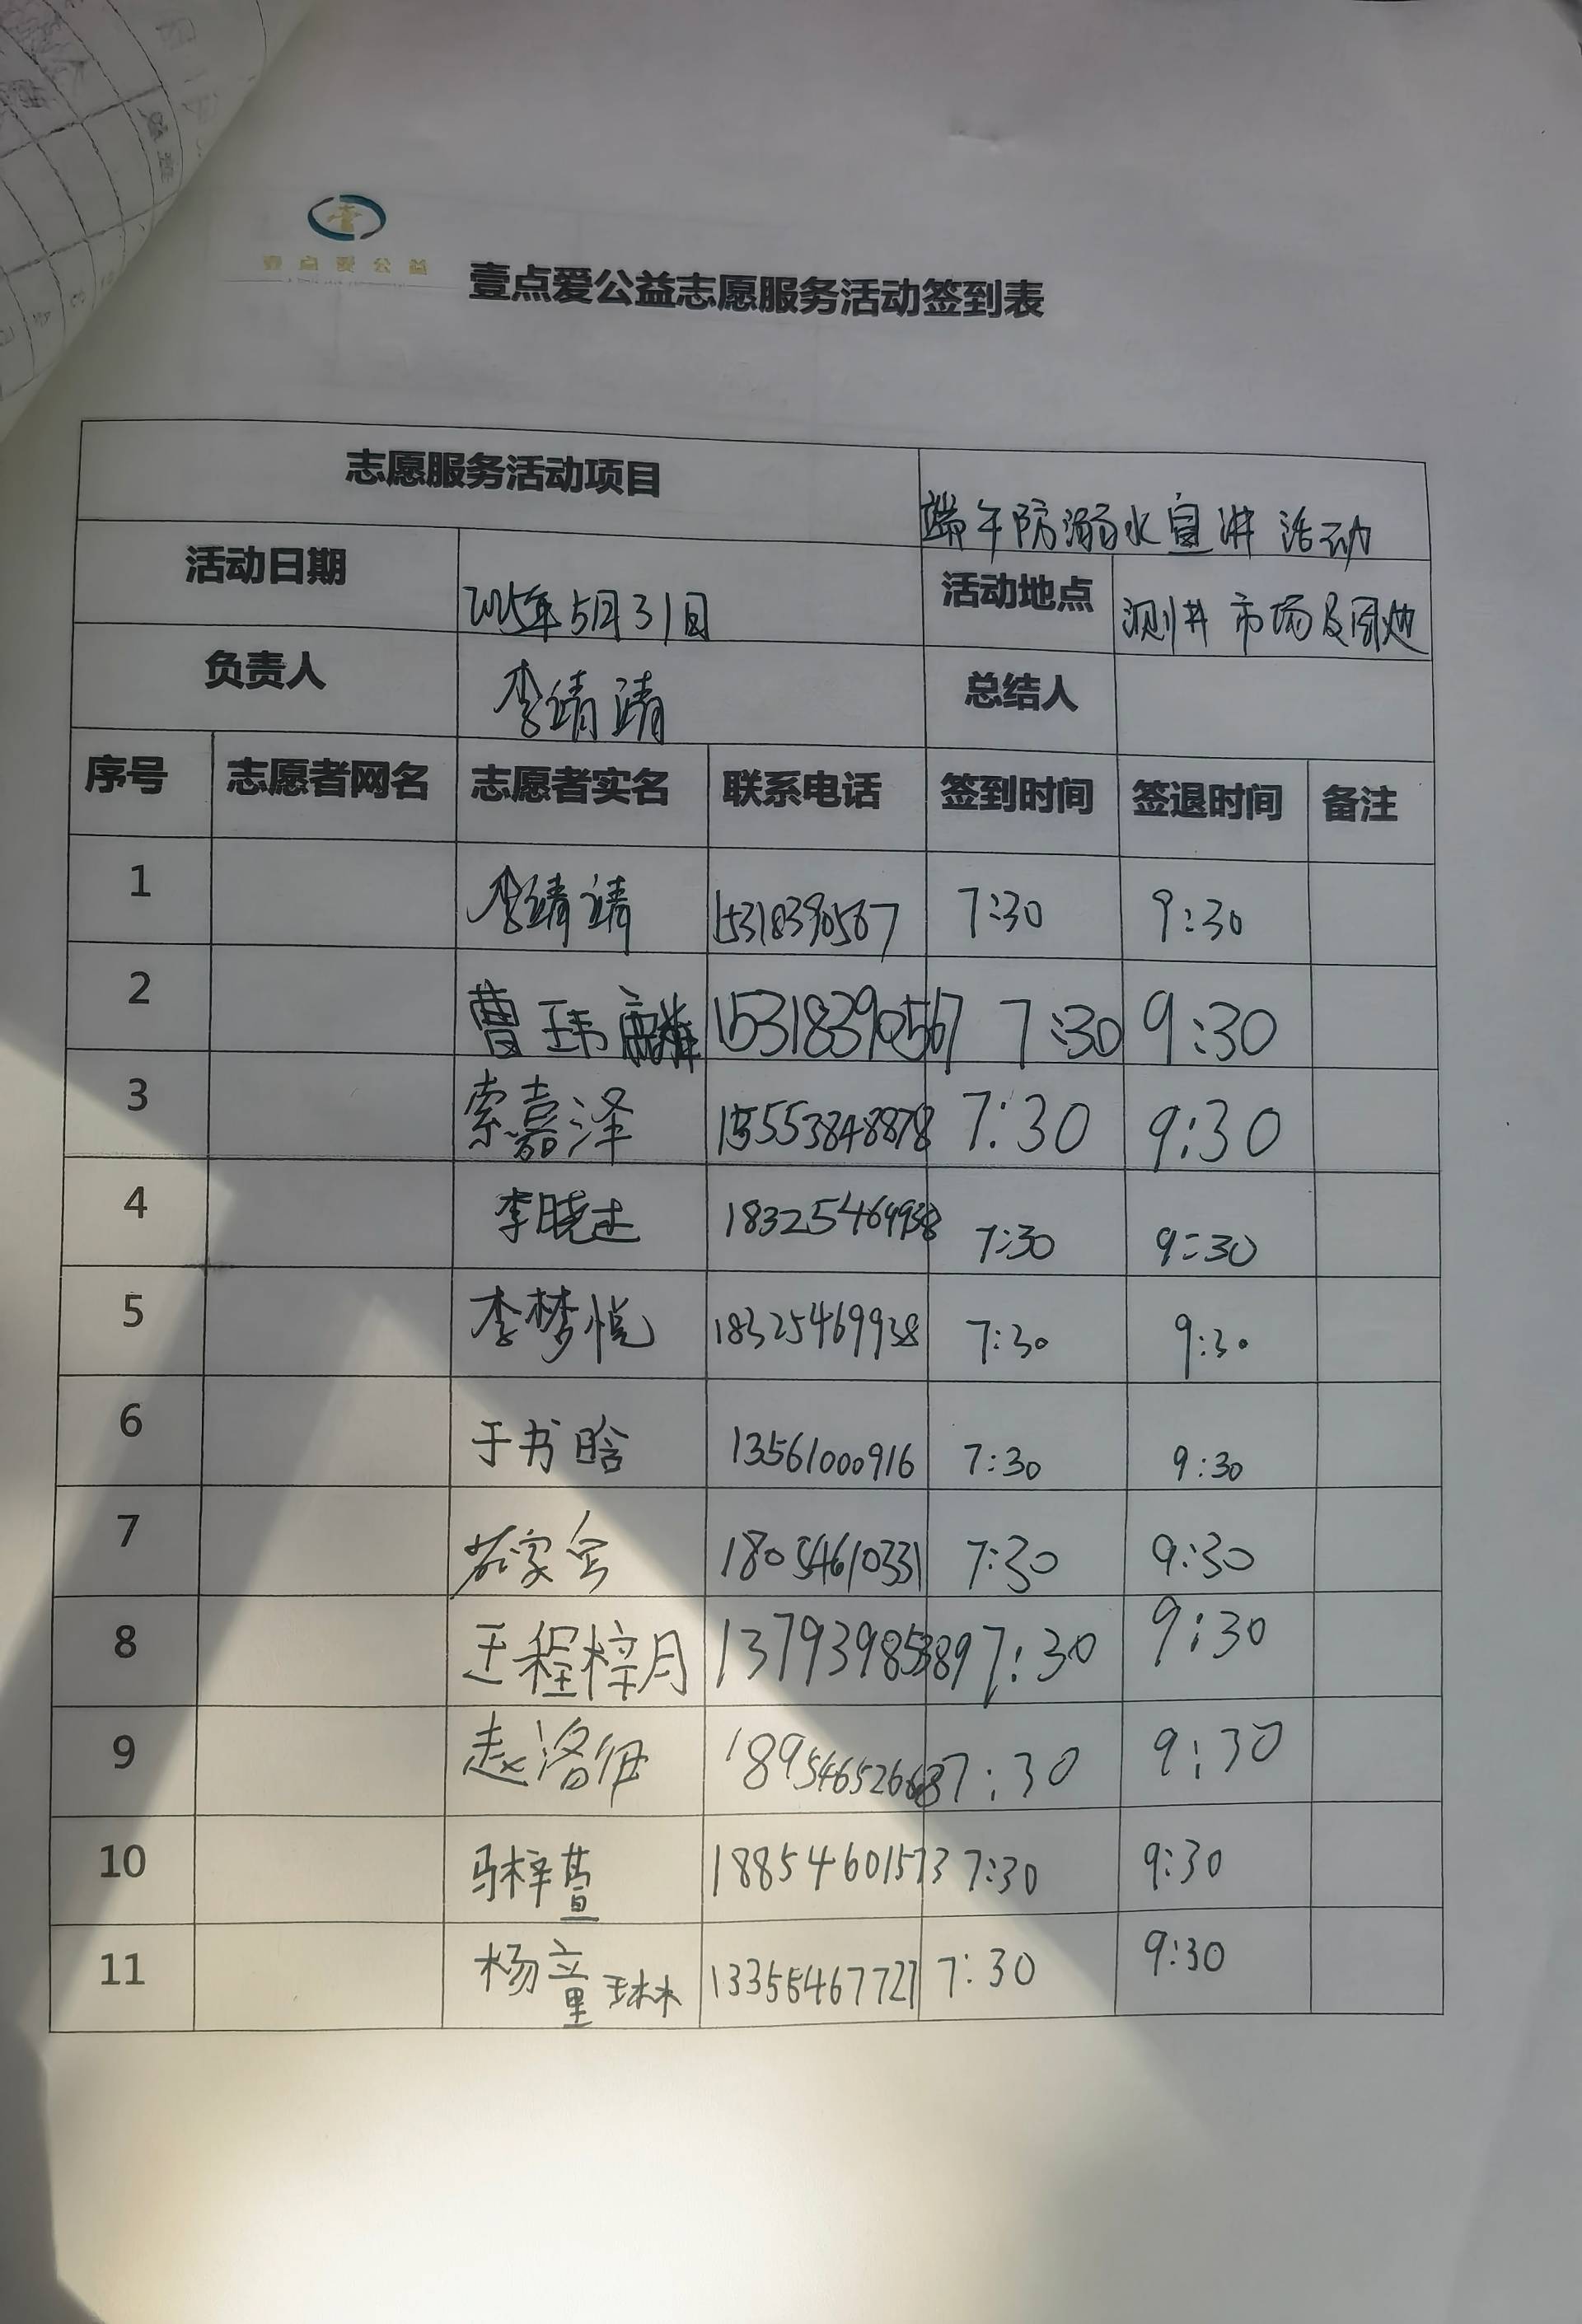 壹点爱公益
壹点爱公益志愿服务活动签到表
志愿服务活动项目 端午防溺水宣讲活动
活动日期 2025年5月31日 活动地点 测井市场及周边
负责人 李靖靖 总结人
序号 志愿者网名 志愿者实名 联系电话 签到时间 签退时间 备注
1 李靖靖 15318390567 7:30 9:30
2 曹玮麟 15318390567 7:30 9:30
3 索嘉泽 15553848878 7:30 9:30
4 李晓 18325469938 7:30 9:30
5 李梦悦 18325469938 7:30 9:30
6 于书晗 13561000916 7:30 9:30
7 18054610331 7:30 9:30
8 王程梓月 13793985389 7:30 9:30
9 赵洛伊 7:30 9:30
10 马梓萱 18854601573 7:30 9:30
11 杨童琳 13355467727 7:30 9:30